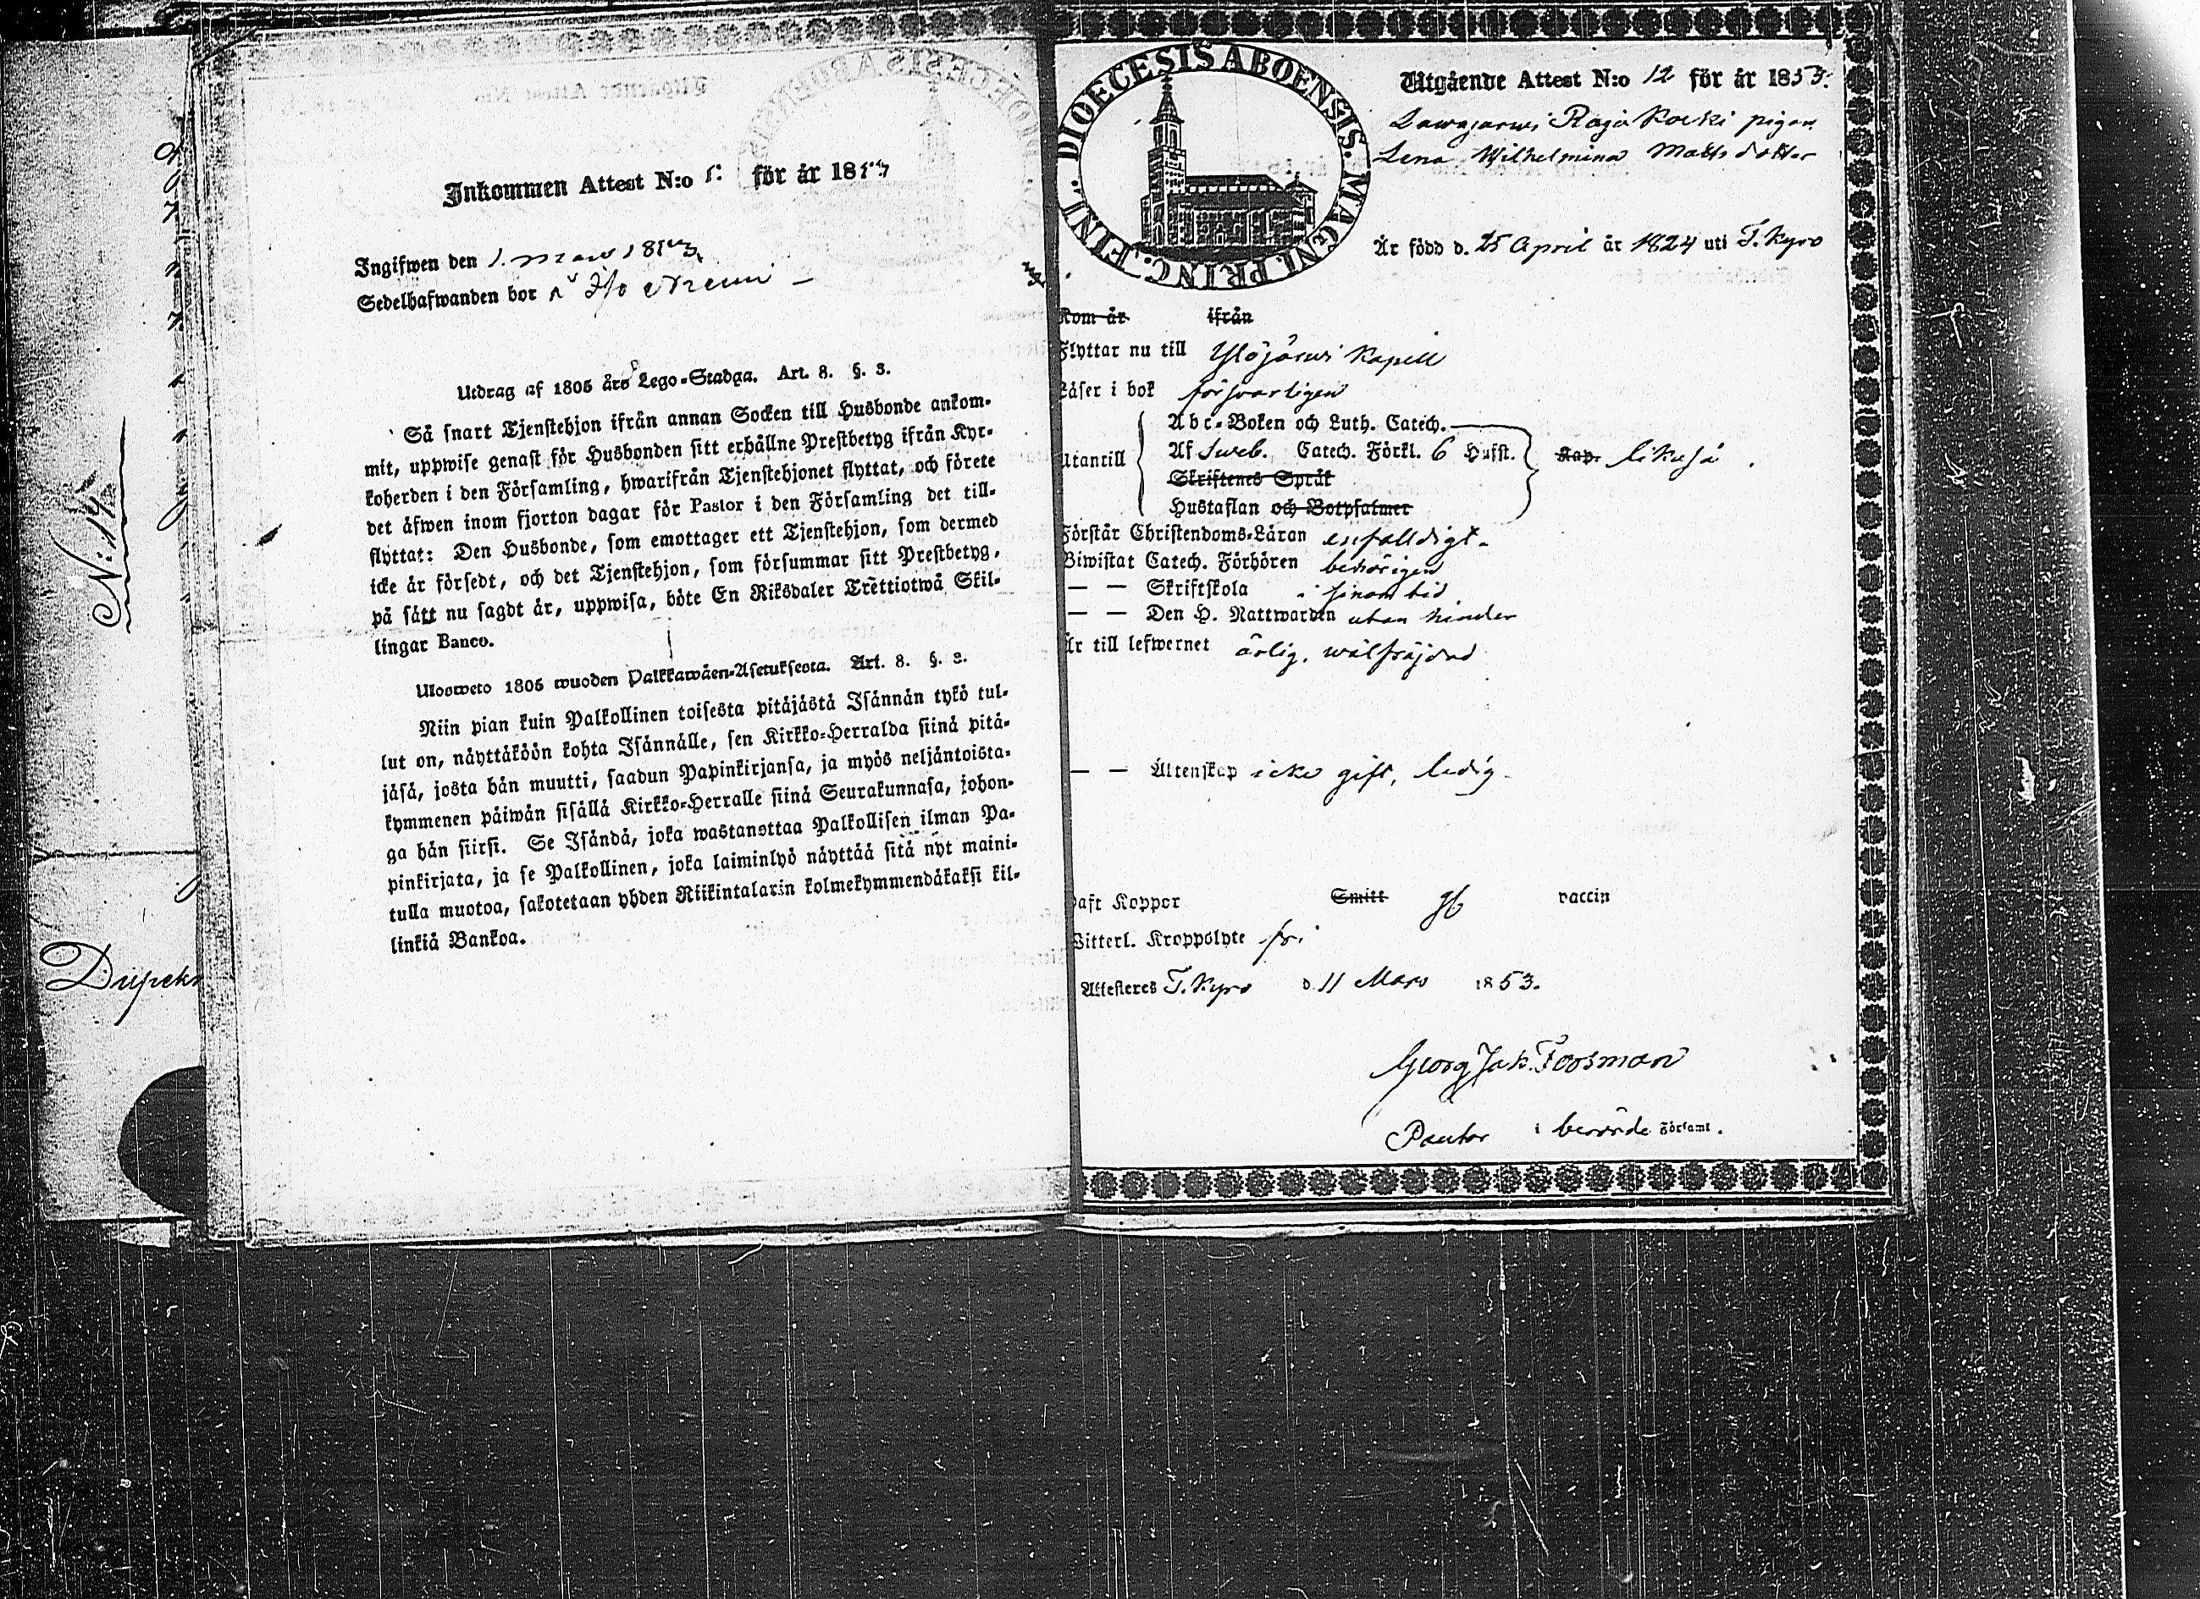 N: 14
Inkommen Attest N:o för år 1853
Ingifwen den 1. mars 1853
Sedelhafwanden bor
Utdrag af 1805 års Lego-Stadga. Art. 8. §. 3.
Så snart Tjenstehjon ifrån annan Socken till Husbonde ankom-
mit, uppwise genast för Husbonden sitt erhållne Prestbetyg ifrån Kyr-
koherden i den Församling, hwarifrån Tjenstehjonet flyttat, och förete
det äfwen inom fjorton dagar för Pastor i den Församling det till-
flyttat: Den Husbonde, som emottager ett Tjenstehjon, som dermed
icke är försedt, och det Tjenstehjon, som försummar sitt Prestbetyg,
på sätt nu sagdt är, uppwisa, böte En Riksdaler Trettiotwå Skil-
lingar Banco.
Ulosweto 1805 wuoden Palkkawäen-Asetuksesta. Art. 8. §. 3.
Niin pian kuin Palkollinen toisesta pitäjästä Isännän tykö tul-
lut on, näyttäköön kohta Isännälle, sen Kirkko-Herralda siinä pitä-
jäsä, josta hän muutti, saadun Papinkirjansa, ja myös neljäntoista-
kymmenen päiwän sisällä Kirkko-Herralle siinä Seurakunnasa, johon-
ga hän siirsi. Se Isändä, joka wastanottaa Palkollisen ilman Pa-
pinkirjata, ja se Palkollinen, joka laiminlyö näyttää sitä nyt maini-
tulla muotoa, sakotetaan yhden Riikintalarin kolmekymmendäkaksi kil-
linkiä Bankoa.
DIOECESIS ABOENSIS. MAGNI. PRINC. FINL.
Utgående Attest N:o 12 för år 1853.
Lawajarwi Raja Koski pigan
Lena Wilhelmina Mattsdotter
Är född d. 25 April år 1824 uti T. Kyro
Kom år ifrån
Flyttar nu till Ylöjärwi Kapell
Läser i bok försvarligen
Abc-Boken och Luth. Catech.
Utantill Af Sveb. Catech. Förkl. 6 Hufst. Kap. likaså.
Skriftenes Språk
Hustaflan och Botpsalmer
Förstår Christendoms-Läran enfalldigt.
Biwistat Catech. Förhören behörigen
— — Skriftskola i sinom tid
— — Den H. Nattwarden utan hinder
Är till lefwernet ärlig, wälfräjdad
— — Äktenskap icke gift, ledig.
Haft Koppor Smitt gb vaccin
Witterl. Kroppslyte fri
Attesteres T. Kyro d. 11 Mars 1853.
Georg Jak. Foosman
Pastor i berörde Församl.